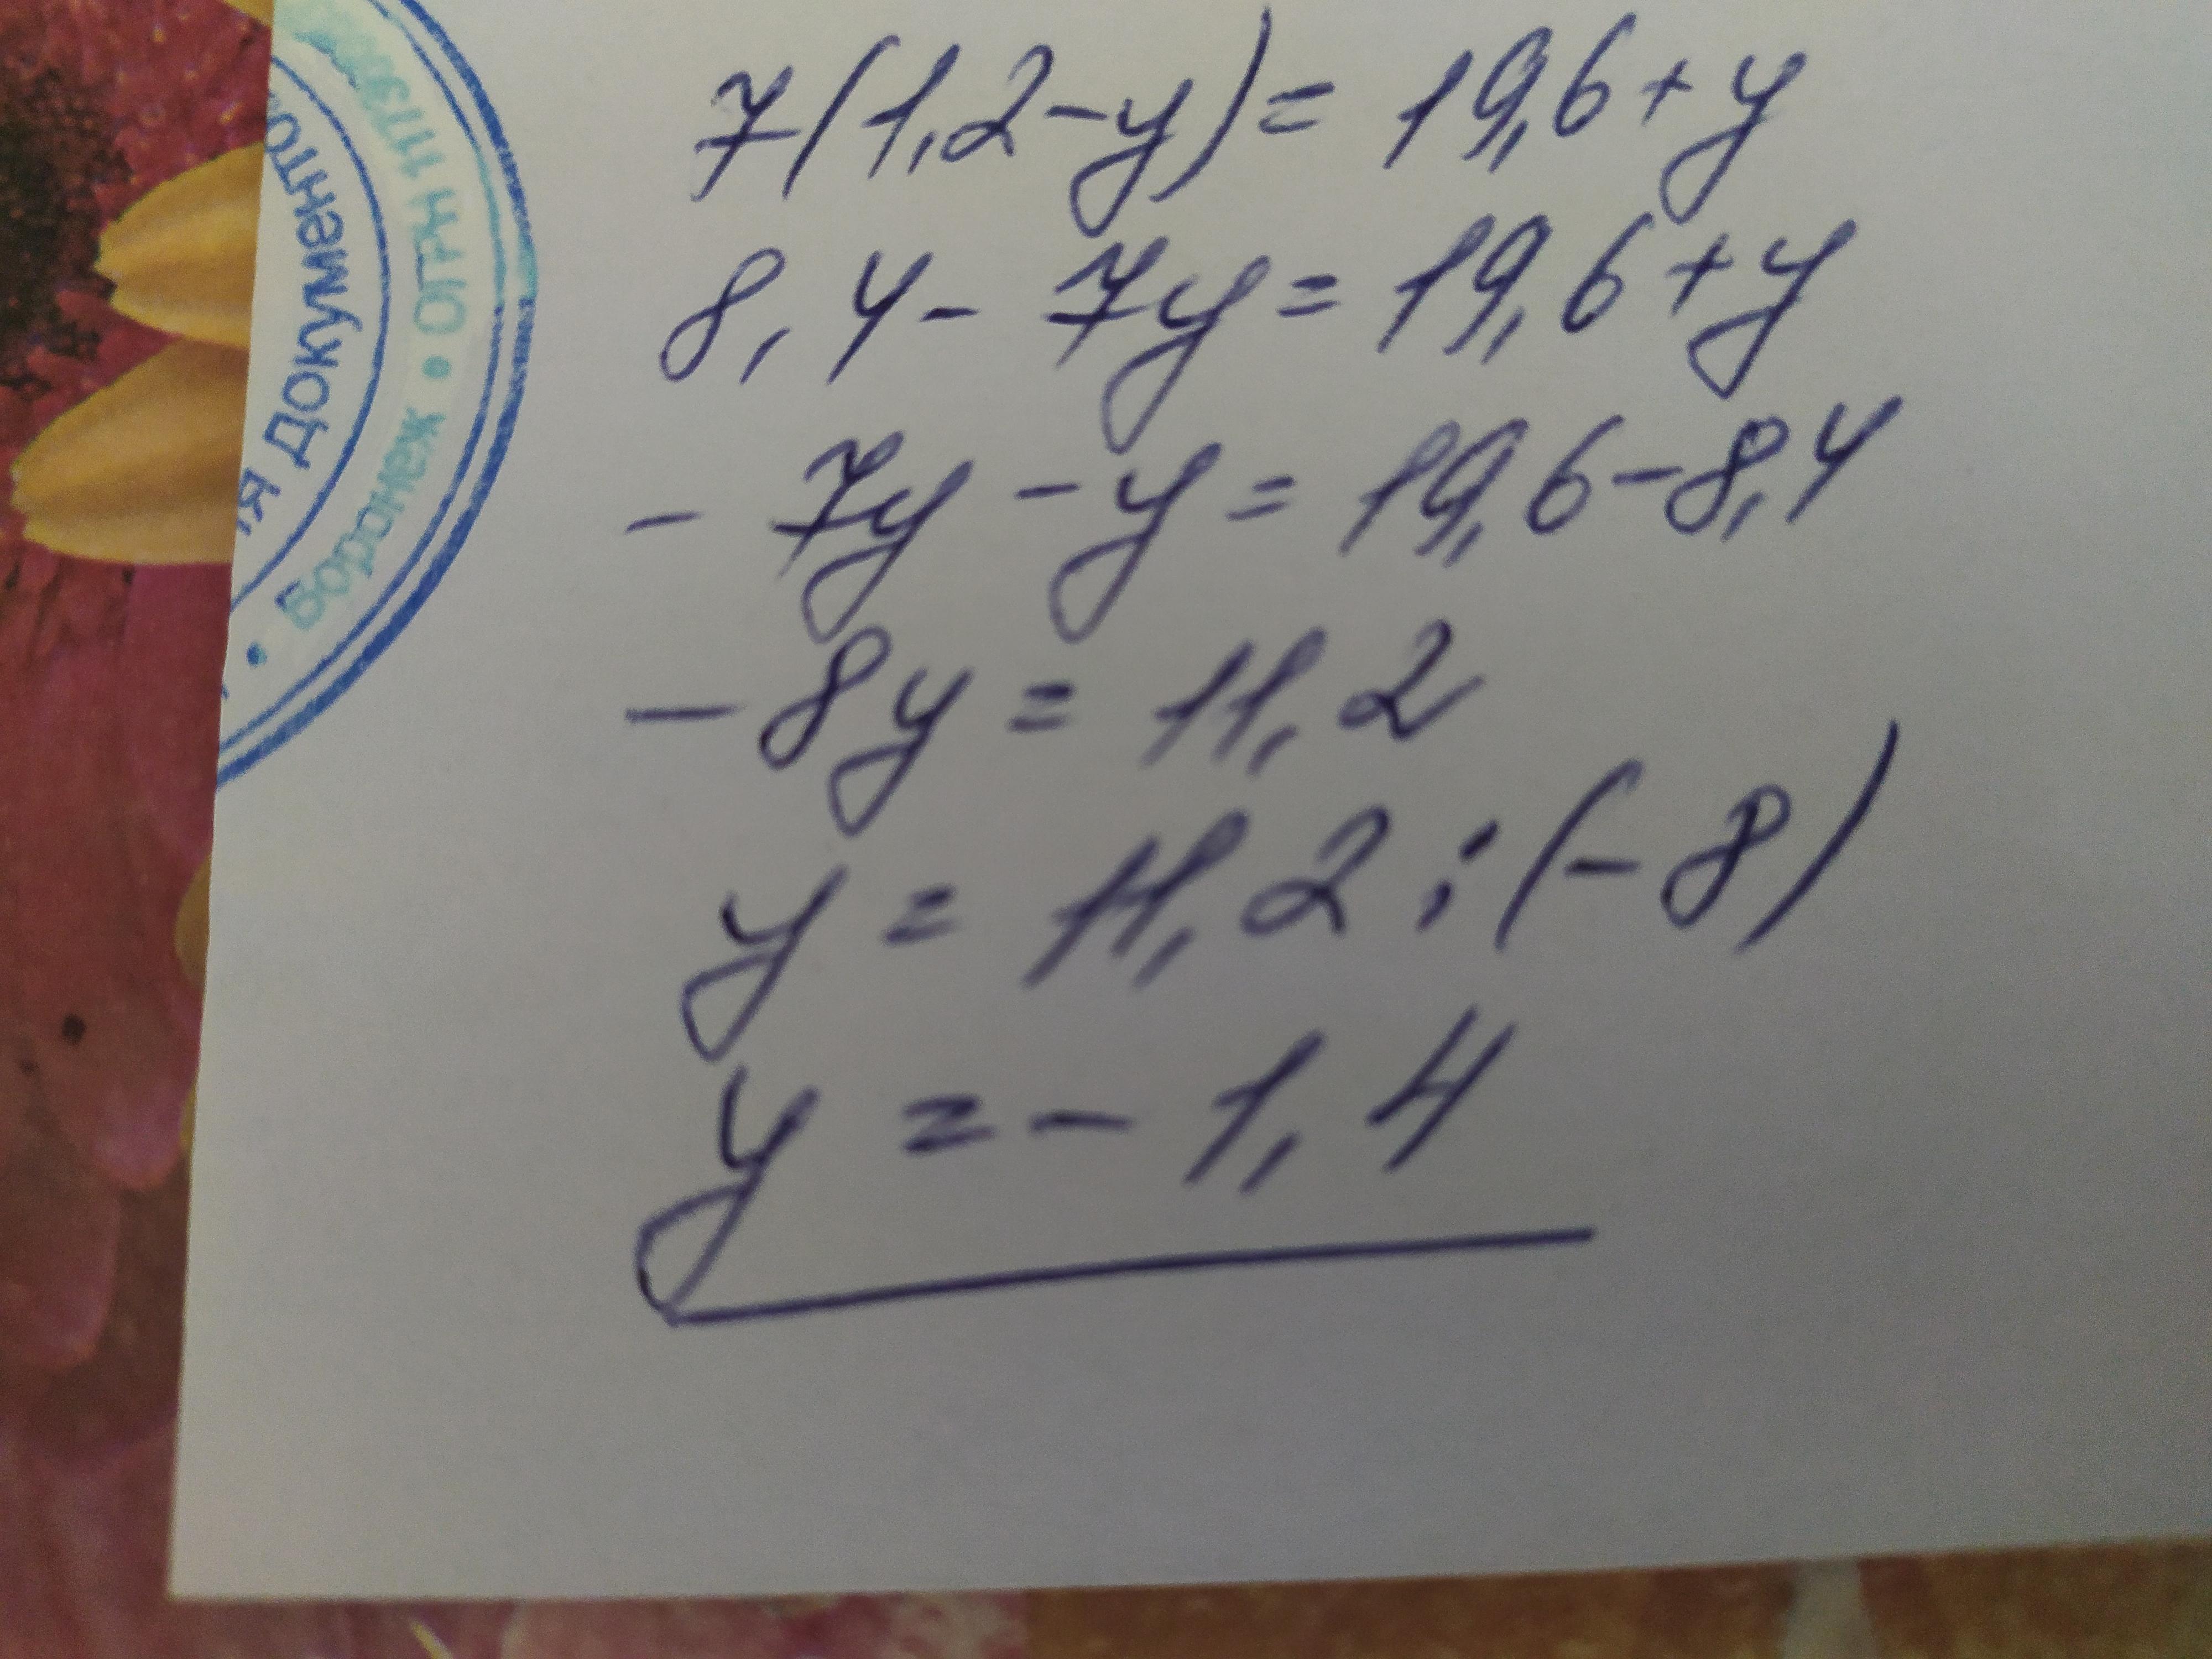 7(1,2-y)= 19,6+y
8,4- 7y=19,6+y
- 7y -y = 19,6-8,4
-8y = 11,2
y = 11,2 : (-8)
y =- 1,4
Воронеж • ОГРН